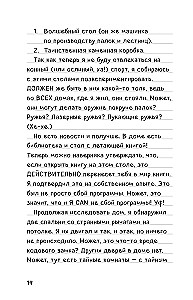 1. Волшебный стол (он же машинка
по производству палок и лестниц).
2. Таинственная каменная коробка.
Так как теперь я не буду отвлекаться на
конный (или ослиный, ха!) спорт, я собираюсь
с этими столами поэкспериментировать.
ДОЛЖЕН же быть в них какой-то толк, ведь
во ВСЕХ домах, где я жил, они стояли! Может,
они могут делать оружие покруче палок?
Ружья? Лазерные ружья? Пукающие ружья?
(Хе-хе.)
Но есть новости и получше. В доме есть
библиотека и стол с летающей книгой!
Теперь можно наверняка утверждать, что,
если открыть книгу на этом столе, это
ДЕЙСТВИТЕЛЬНО перенесёт тебя в мир книги.
Я подтвердил это на собственном опыте. Это
был не просто сбой программы. Может, это
значит, что и Я САМ не сбой программы? Уф!
Продолжая исследовать дом, я обнаружил
две спальни с странными рычагами на
потолке. Я их двигал и так, и этак, но ничего
не происходило. Может, это что-то вроде
кодового замка? Других дверей в доме нет.
Может, тут есть тайные комнаты – с тайном
14